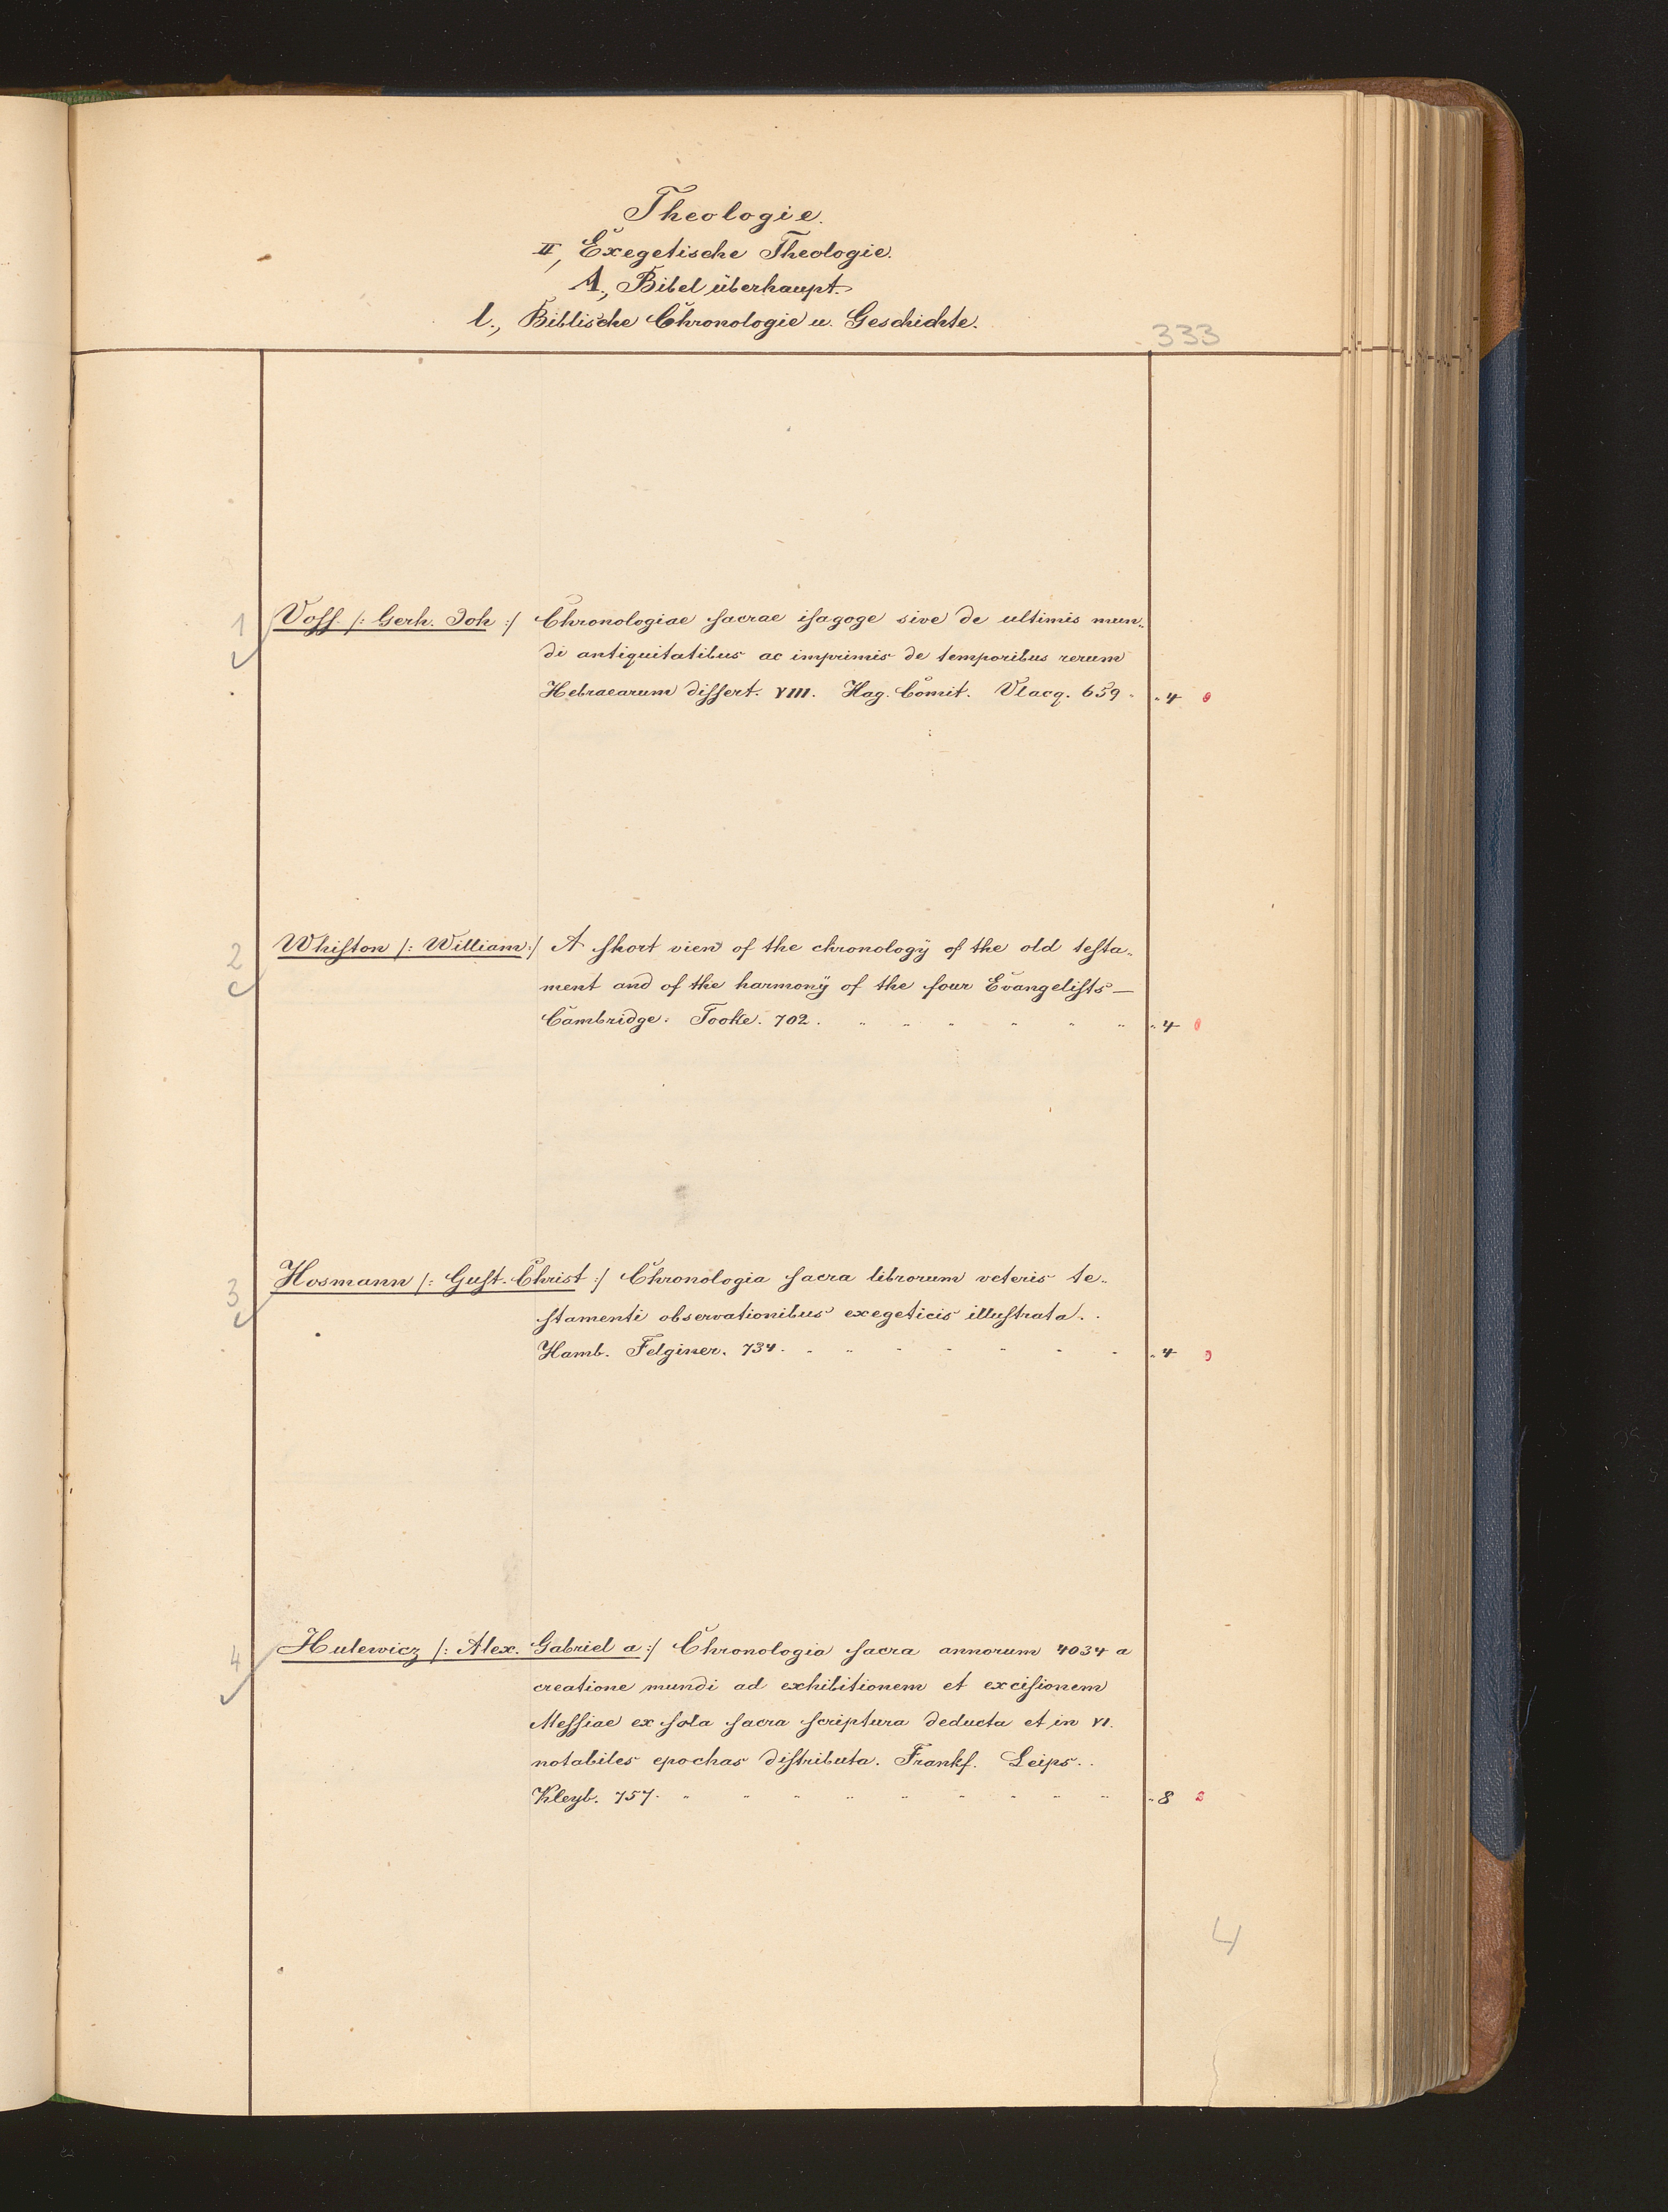 Theologie.
II, Exegetische Theologie.
A., Bibel überhaupt.
l., Biblische Chronologie u. Geschichte.
333
1 Voss /: Gerh. Joh :/ Chronologiae sacrae isagoge sive de ultimis mun„
di antiquitatibus ac imprimis de temporibus rerum
Hebraearum dissert. VIII. Hag. Comit. Vlacq. 659. „4
2 Whiston /: William :/ A short view of the chronology of the old testa„
ment and of the harmony of the four Evangelists —
Cambridge. Tooke. 702. „4
3 Hosmann /: Gust. Christ :/ Chronologia sacra librorum veteris te„
stamenti observationibus exegeticis illustrata.
Hamb. Felginer. 734. „4
4 Hulewicz /: Alex. Gabriel a :/ Chronologia sacra annorum 4034 a
creatione mundi ad exhibitionem et excisionem
Messiae ex sola sacra scriptura deducta et in VI.
notabiles epochas distributa. Frankf. Leips.
Kleyb. 757. „8
4